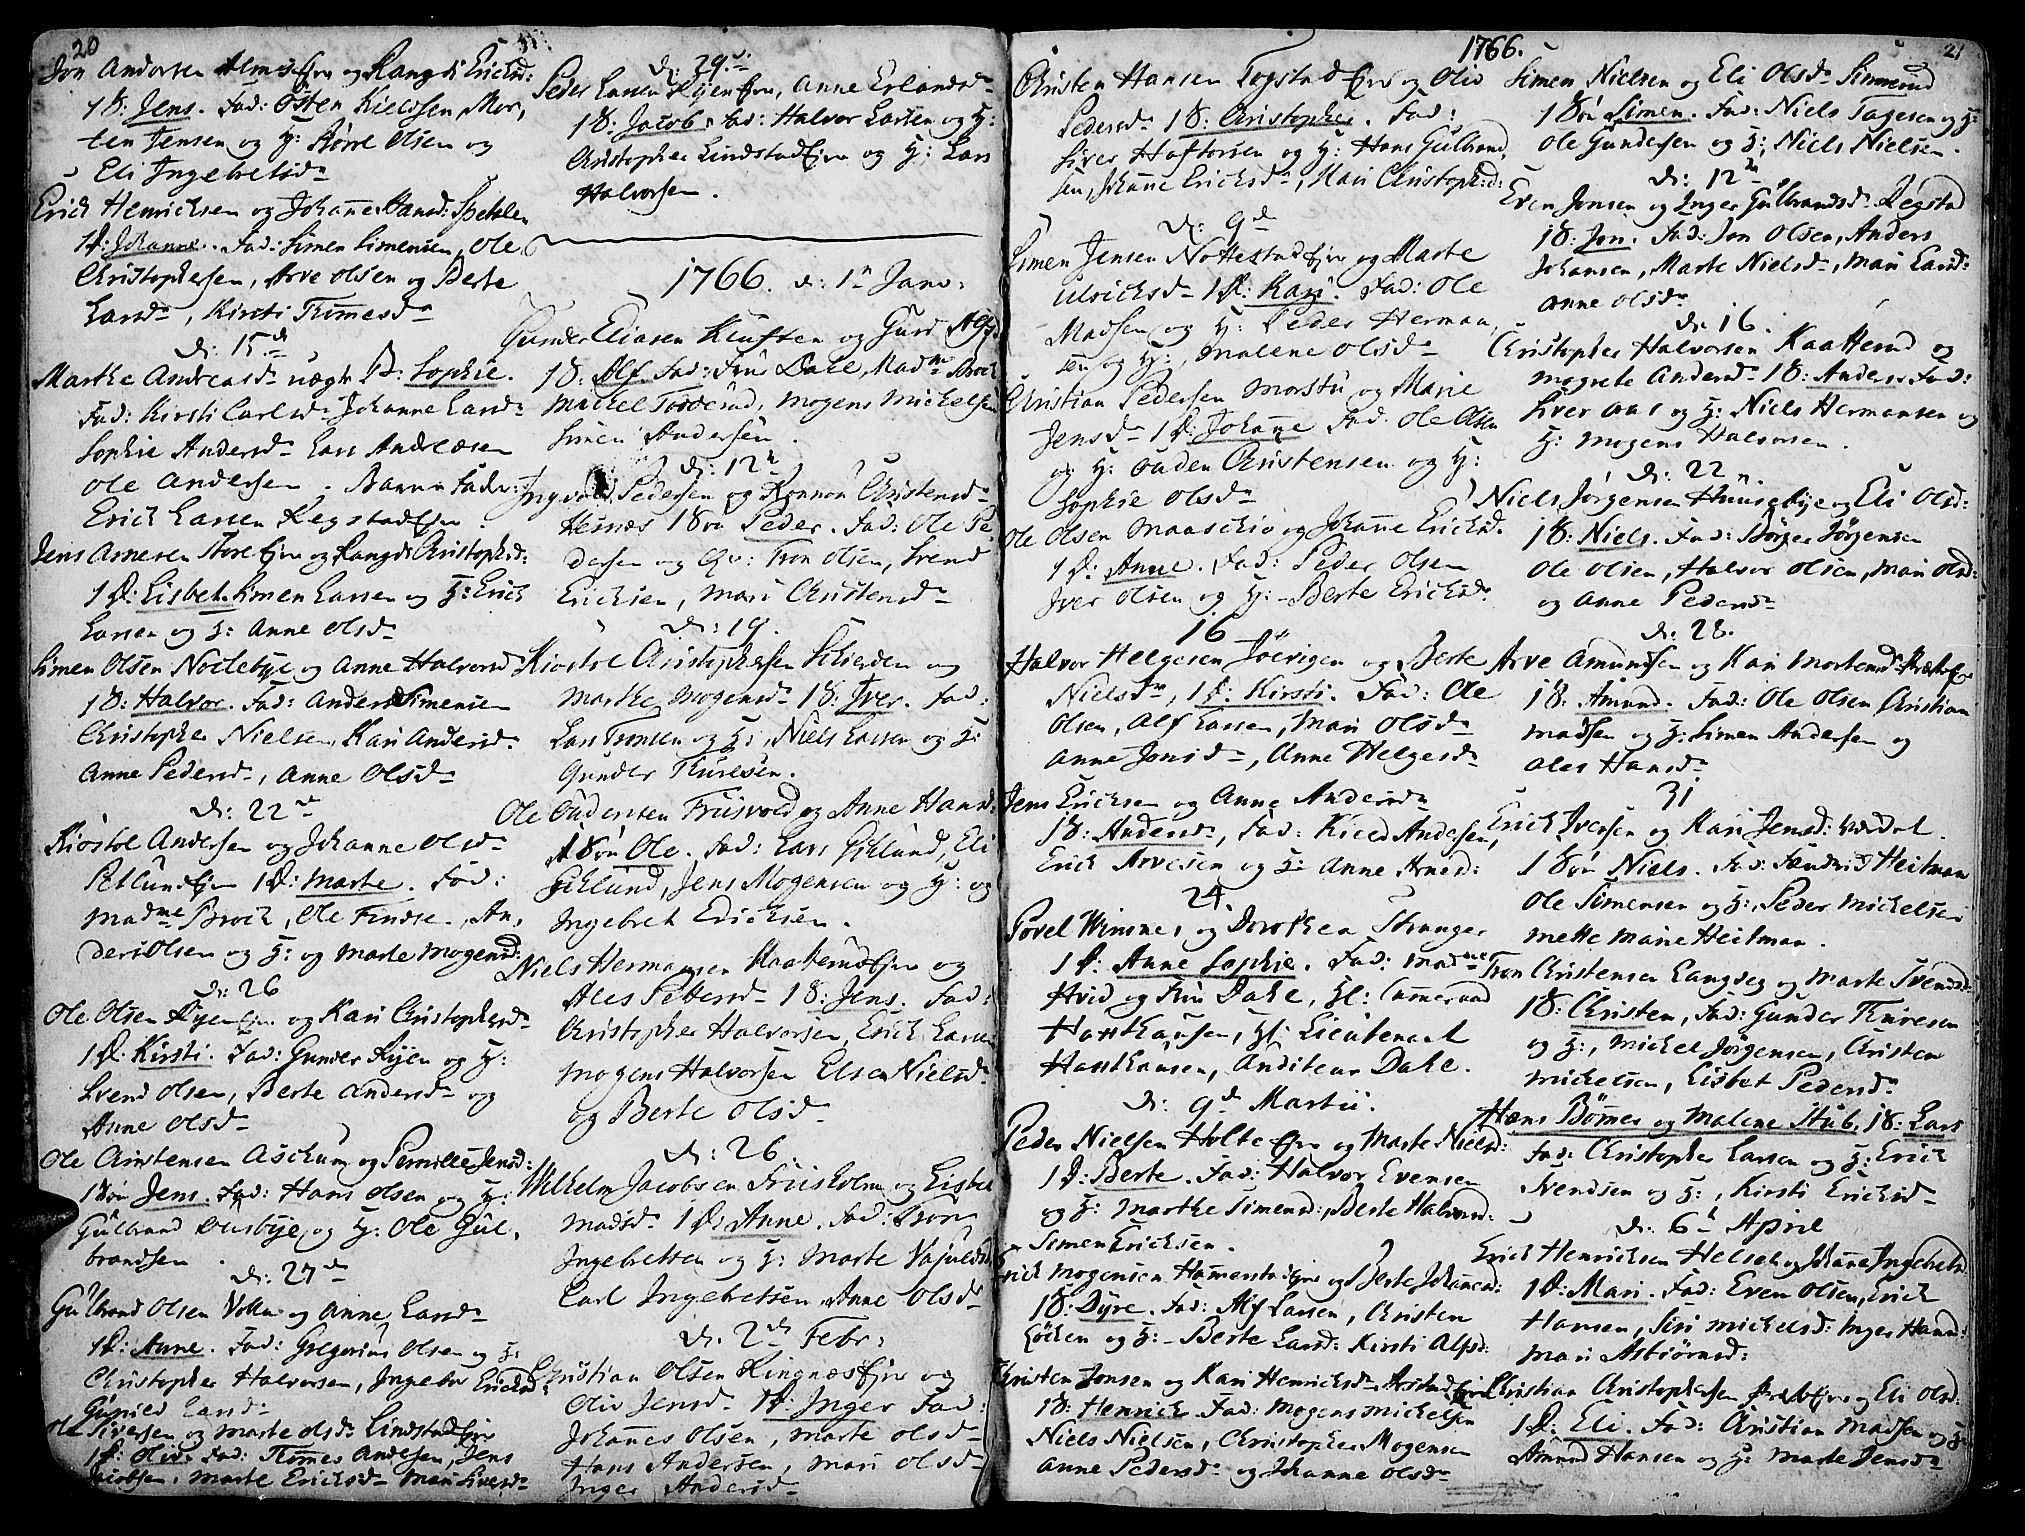 20
Jon Andersen Almseje og Rangdi Ericksd:
1 S: Jens. Fad: Østen Kieldsen, Mor,
ten Jensen og H: Sørre Olsen og
Eli Ingebretsd.
Erich Henrichsen og Johanne Hansd: Spetalen
1 D: Johanne. Fad: Simen Simensen, Ole
Christophersen, Arve Olsen og Berte
Larsd, Kirsti Thomesd
d: 15d
Marthe Andreasd uægte D: Sophie.
Fad: Kirsti Carlsd Johanne Larsd
Sophie Andersd Lars Andreæsen
Ole Andersen. Barne Fader:
Erich Larsen Regstadeje.
Jens Arnesen Storeeje og Rangdi Christophsd:
1 D: Lisbet. Simen Larsen og H: Erick
Larsen og H: Anne Olsd
Simen Olsen Noclebye og Anne Halvorsd
1 S: Halvor. Fad: Anders Simensen
Christopher Nielsen, Kari Andersd.
Anne Pedersd, Anne Olsd
d: 22d
Kiøstol Andersen og Johanne Olsd
Petlundeje 1 D: Marte. Fad:
Madme Brock, Ole Findse, An,
ders Olsen og H: og Marte Mogensd:
d: 26
Ole Olsen Ryeneje og Kari Christophersd
1 D: Kirsti. Fad: Gunder Ryen og H:
Svend Olsen, Berte Andersd og
Anne Olsd
Ole Christensen Aschum og Pernille Jensd:
1 Søn Jens. Fad: Hans Olsen og H:
Gulbrand Dusbye og H: Ole Gul,
brandsen.
d: 27d
Gulbrand Olsen Volla og Anne Larsd
1 D: Anne. Fad: Gregorius Olsen og H:
Christopher Halvorsen, Ingebor Ericksd
Gunild Larsd
Ole Siversen og Marte Olsd Lindstadeje
1 D: Oliv. Fad: Thomes Andersen, Jens
Jacobsen. Marte Ericksd Mari Siversd
d: 29d
Peder Larsen Ryeneje, Anne Erlandsd
1 S: Jacob. Fad: Halvor Larsen og H:
Christopher Lindstadeje og H: Lars
Halvorsen.
1766. d: 1n Janv:
Gunder Eliasen Kluften og Guro Alfsd
1 S: Alf. Fad: Frue Dahl, Madme Brock
Mickel Torderud, Mogens Mickelsen
Simen Andersen.
d: 12n
Ingvald Pedersen og Ronnon Christensd
Hesnæs 1 Søn Peder. Fad: Ole Pe
dersen og Qv: Tron Olsen, Svend
Ericksen, Mari Christensd
d: 19.
Kiøstol Christophersen Schierden og
Marthe Mogensd 1 S: Iver. Fad:
Lars Tronsen og H:, Niels Larsen og H:
Gunder Thuresen.
Ole Gudersen Friisvold og Anne Hansd:
1 Søn Ole. Fad: Lars Gihlund, Eli
Gihlund, Jens Mogensen og H: og
Ingebret Ericksen.
Niels Hermansen Kaatterudeje og
Ales Pettersd 1 S: Jens. Fad:
Christopher Halvorsen, Erick Larsen
Mogens Halvorsen Else Nielsd
og Berte Olsd
d: 26.
Wilhelm Jacobsen Friisholm og Lisbet
Madsd 1 D: Anne. Fad: Tron
Ingebretsen og H: Marte
Carl Ingebretsen, Anne Olsd
d: 2d Febr:
Christian Olsen Ringnæseje og
Oliv Jensd 1 D: Inger Fad:
Johannes Olsen, Marte Olsd
Hans Andersen, Mari Olsd
Inger Andersd
1766.
Christen Hansen Togstadeje og Oliv
Pedersd 1 S: Christopher. Fad:
Siver Haftorsen og H: Hans Gulbrand,
sen, Johanne Ericksd, Mari Christophsd:
d: 9d
Simen Jensen Nottestadeje og Marte
Ulricksd 1 D: Kari. Fad: Ole
Madsen og H: Peder Herman,
sen og H:, Malene Olsd
Christian Pedersen Morstu og Marie
Jensd 1 D: Johanne Fad: Ole Olsen
og H: Guden Christensen og H:
Sophie Olsd
Ole Olsen Maaschio og Johanne Ericksd.
1 D: Anne. Fad: Peder Olsen
Iver Olsen og H: Berte Ericksd.
16
Halvor Helgesen Jøevigen og Berte
Nielsd, 1 D: Kirsti. Fad: Ole
Olsen, Alf Larsen, Mari Olsd
Anne Jonsd, Anne Helgesd
Jens Ericksen og Anne Andersd
1 S: Anders, Fad: Kield Andersen,
Erick Arvesen og H: Anne Arnesd:
24.
Povel Wimmes og Dorothea Stranger
1 D: Anne Sophie. Fad: Madme
Hvid og Frue Dahl, Hl: Cammeraad
Hausthausen, Hl: Lieutenant
Hausthausen, Auditeur Dahl.
d: 9d Martii.
Peder Nielsen Holteeje og Marte Nielsd:
1 D: Berte. Fad: Halvor Evensen
og H: Marthe Simensd:, Berte Halvorsd:
Simen Ericksen.
Erick Mogensen Hamerstadeje og Berte Johansd:
1 S: Dyre. Fad: Alf Larsen, Christen
Løcken og H: Berte Larsd: Kirsti Alfsd:
Christen Jonsen og Kari Henricksd Arstadeje
1 S: Henrick Fad: Mogens Mickelsen
Niels Nielsen, Christopher Mogensen
Anne Pedersd og Johanne Olsd
21
Simen Nielsen og Eli Olsd Simmerud
1 Søn Simen. Fad: Niels Tagesen og H:
Ole Gundersen og H:, Niels Nielsen.
d: 12n
Even Jonsen og Inger Gulbrandsd. Regstad
1 S: Jon. Fad: Jon Olsen, Anders
Johansen, Marte Nielsd, Mari Larsd:
Anne Olsd
d: 16.
Christopher Halvorsen Kaatterud og
Mogrete Andersd 1 S: Anders Fad:
Sver Aas og H: Niels Hermansen og
H: Mogens Halvorsen.
d: 22
Niels Jørgensen Huusebye og Eli Olsd:
1 S: Niels. Fad: Børger Jørgensen
Ole Olsen, Halvor Olsen, Mari Olsd:
og Anne Pedersd
d: 28.
Arve Amundsen og Kari Mortensd: Præsteje
1 S: Amund. Fad: Ole Olsen, Christian
Madsen og H: Simen Andersen og
Ales Hansd
31
Erich Iversen og Kari Jensd: Verdal.
1 Søn Niels. Fad: Fændrich Heitman
Ole Simensen og H:, Peder Mickelsen
Mette Marie Heitman.
Tron Christensen Langseg og Marte Svendsd:
1 S: Christen, Fad: Gunder Thuresen
og H:, Mickel Jørgensen, Christen
Mickelsen, Lisbet Pedersd
Hans Bømes og Malene Stub. 1 S: Lars
Fad: Christopher Larsen og H: Erick
Svendsen og H:, Kirsti Ericksd
d: 6t Aprie
Erick Henricksen Helset og Johanne Ingebretsd
1 D: Mari. Fad: Even Olsen, Erick
Hansen, Siri Mickelsd: Inger Hansd:
Mari Asbiørnsd:
Christian Christophersen Præsteje og Eli Olsd:
1 D: Eli. Fad: Christian Madsen og H:
Amund Hansen og H: Marte Jensd